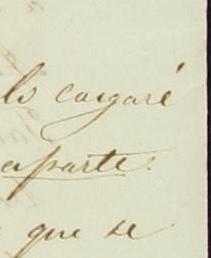 lo cargaré
aparte.
que se